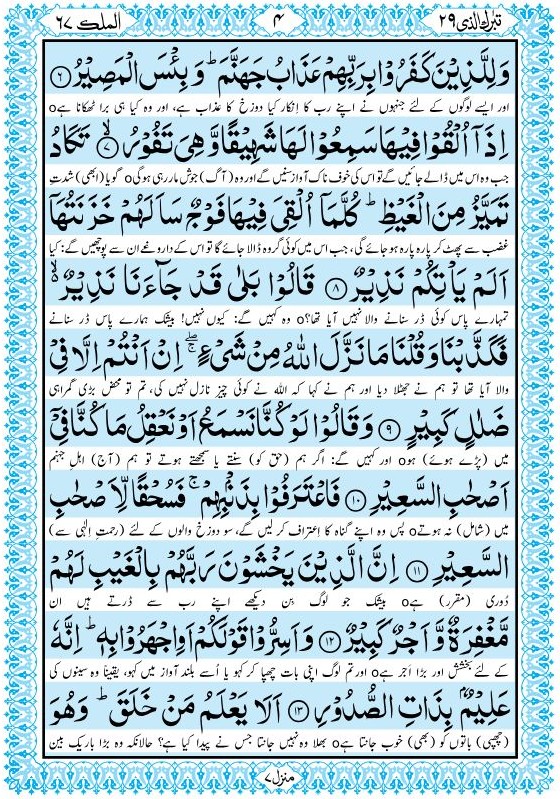 تبٰرک الذی ۲۹ ۴ الملک ۶۷
وَلِلَّذِیْنَ كَفَرُوْا بِرَبِّهِمْ عَذَابُ جَهَنَّمَ ؕ وَ بِئْسَ الْمَصِیْرُ ۝۶
اور ایسے لوگوں کے لئے جنہوں نے اپنے رب کا اِنکار کیا دوزخ کا عذاب ہے، اور وہ کیا ہی برا ٹھکانا ہے o
اِذَاۤ اُلْقُوْا فِیْهَا سَمِعُوْا لَهَا شَهِیْقًا وَّ هِیَ تَفُوْرُ ۙ۝۷ تَكَادُ
جب وہ اس میں ڈالے جائیں گے تو اس کی خوف ناک آواز سنیں گے اور وہ (آگ) جوش مار رہی ہوگی o گویا (ابھی) شدتِ
تَمَیَّزُ مِنَ الْغَیْظِ ؕ كُلَّمَاۤ اُلْقِیَ فِیْهَا فَوْجٌ سَاَلَهُمْ خَزَنَتُهَاۤ
غضب سے پھٹ کر پارہ پارہ ہو جائے گی، جب اس میں کوئی گروہ ڈالا جائے گا تو اس کے داروغے ان سے پوچھیں گے: کیا
اَلَمْ یَاْتِكُمْ نَذِیْرٌ ۝۸ قَالُوْا بَلٰی قَدْ جَآءَنَا نَذِیْرٌ ۙ۬
تمہارے پاس کوئی ڈر سنانے والا نہیں آیا تھا؟ o وہ کہیں گے: کیوں نہیں! بیشک ہمارے پاس ڈر سنانے
فَكَذَّبْنَا وَ قُلْنَا مَا نَزَّلَ اللّٰهُ مِنْ شَیْءٍ ۖۚ اِنْ اَنْتُمْ اِلَّا فِیْ
والا آیا تھا تو ہم نے جھٹلا دیا اور ہم نے کہا کہ اللہ نے کوئی چیز نازل نہیں کی، تم تو محض بڑی گمراہی
ضَلٰلٍ كَبِیْرٍ ۝۹ وَ قَالُوْا لَوْ كُنَّا نَسْمَعُ اَوْ نَعْقِلُ مَا كُنَّا فِیْۤ
میں (پڑے ہوئے) ہو o اور کہیں گے: اگر ہم (حق کو) سنتے یا سمجھتے ہوتے تو ہم (آج) اہلِ جہنم
اَصْحٰبِ السَّعِیْرِ ۝۱۰ فَاعْتَرَفُوْا بِذَنْۢبِهِمْ ۚ فَسُحْقًا لِّاَصْحٰبِ
میں (شامل) نہ ہوتے o پس وہ اپنے گناہ کا اِعتراف کر لیں گے، سو دوزخ والوں کے لئے (رحمتِ اِلٰہی سے)
السَّعِیْرِ ۝۱۱ اِنَّ الَّذِیْنَ یَخْشَوْنَ رَبَّهُمْ بِالْغَیْبِ لَهُمْ
دُوری (مقرر) ہے o بیشک جو لوگ بن دیکھے اپنے رب سے ڈرتے ہیں ان
مَّغْفِرَةٌ وَّ اَجْرٌ كَبِیْرٌ ۝۱۲ وَ اَسِرُّوْا قَوْلَكُمْ اَوِ اجْهَرُوْا بِهٖ ؕ اِنَّهٗ
کے لئے بخشش اور بڑا اَجر ہے o اور تم لوگ اپنی بات چھپا کر کہو یا اُسے بلند آواز میں کہو، یقیناً وہ سینوں کی
عَلِیْمٌۢ بِذَاتِ الصُّدُوْرِ ۝۱۳ اَلَا یَعْلَمُ مَنْ خَلَقَ ؕ وَ هُوَ
(چھپی) باتوں کو (بھی) خوب جانتا ہے o بھلا وہ نہیں جانتا جس نے پیدا کیا ہے؟ حالانکہ وہ بڑا باریک بین
منزل ۷